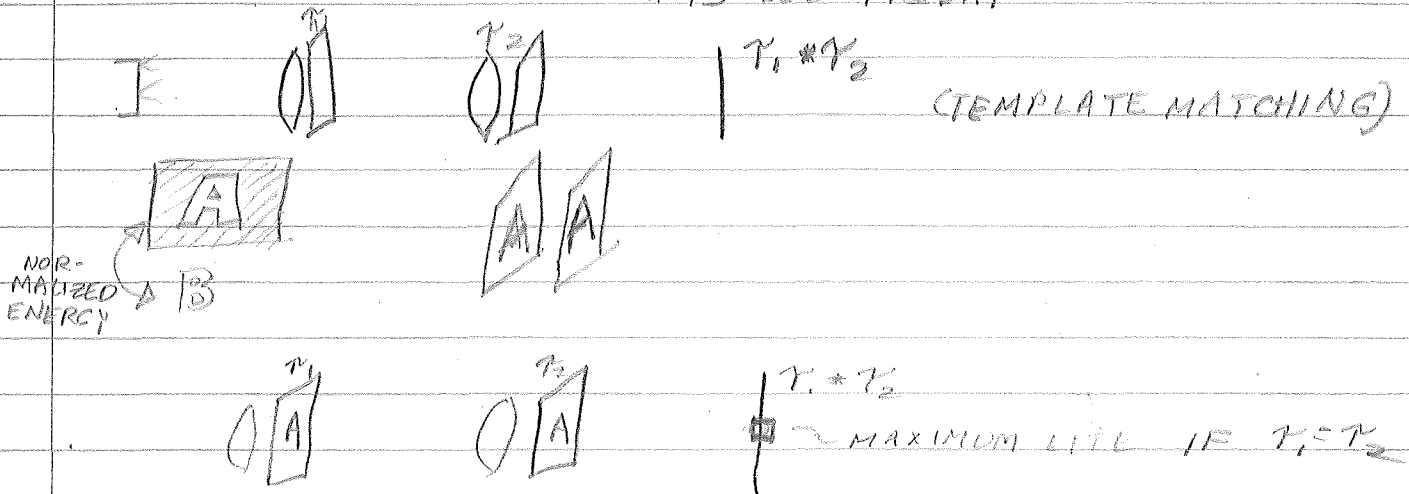 τ₁ τ₂ τ₁ * τ₂
(TEMPLATE MATCHING)
A A A
NOR-
MALIZED
ENERGY
B
τ₁ τ₂ τ₁ * τ₂
A A MAXIMUM LITE IF τ₁ = τ₂